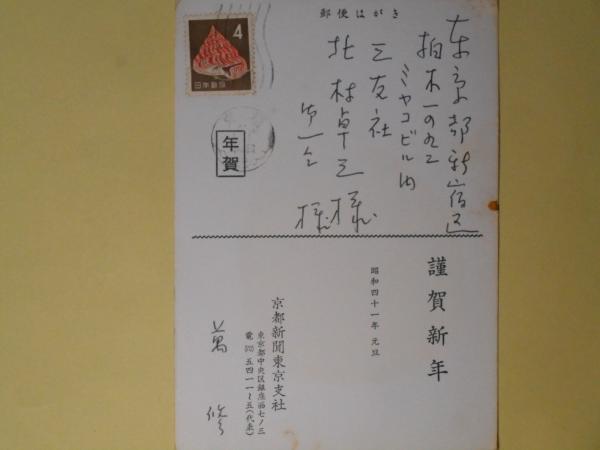 郵便はがき
4
日本郵便
年賀
東京都新宿区
柏木一の九二
ミヤコビル内
三友社
北村卓三様
様
謹賀新年
昭和四十一年 元旦
京都新聞東京支社
東京都中央区銀座西七ノ三
電 五四一一~五(代表)
萬 修